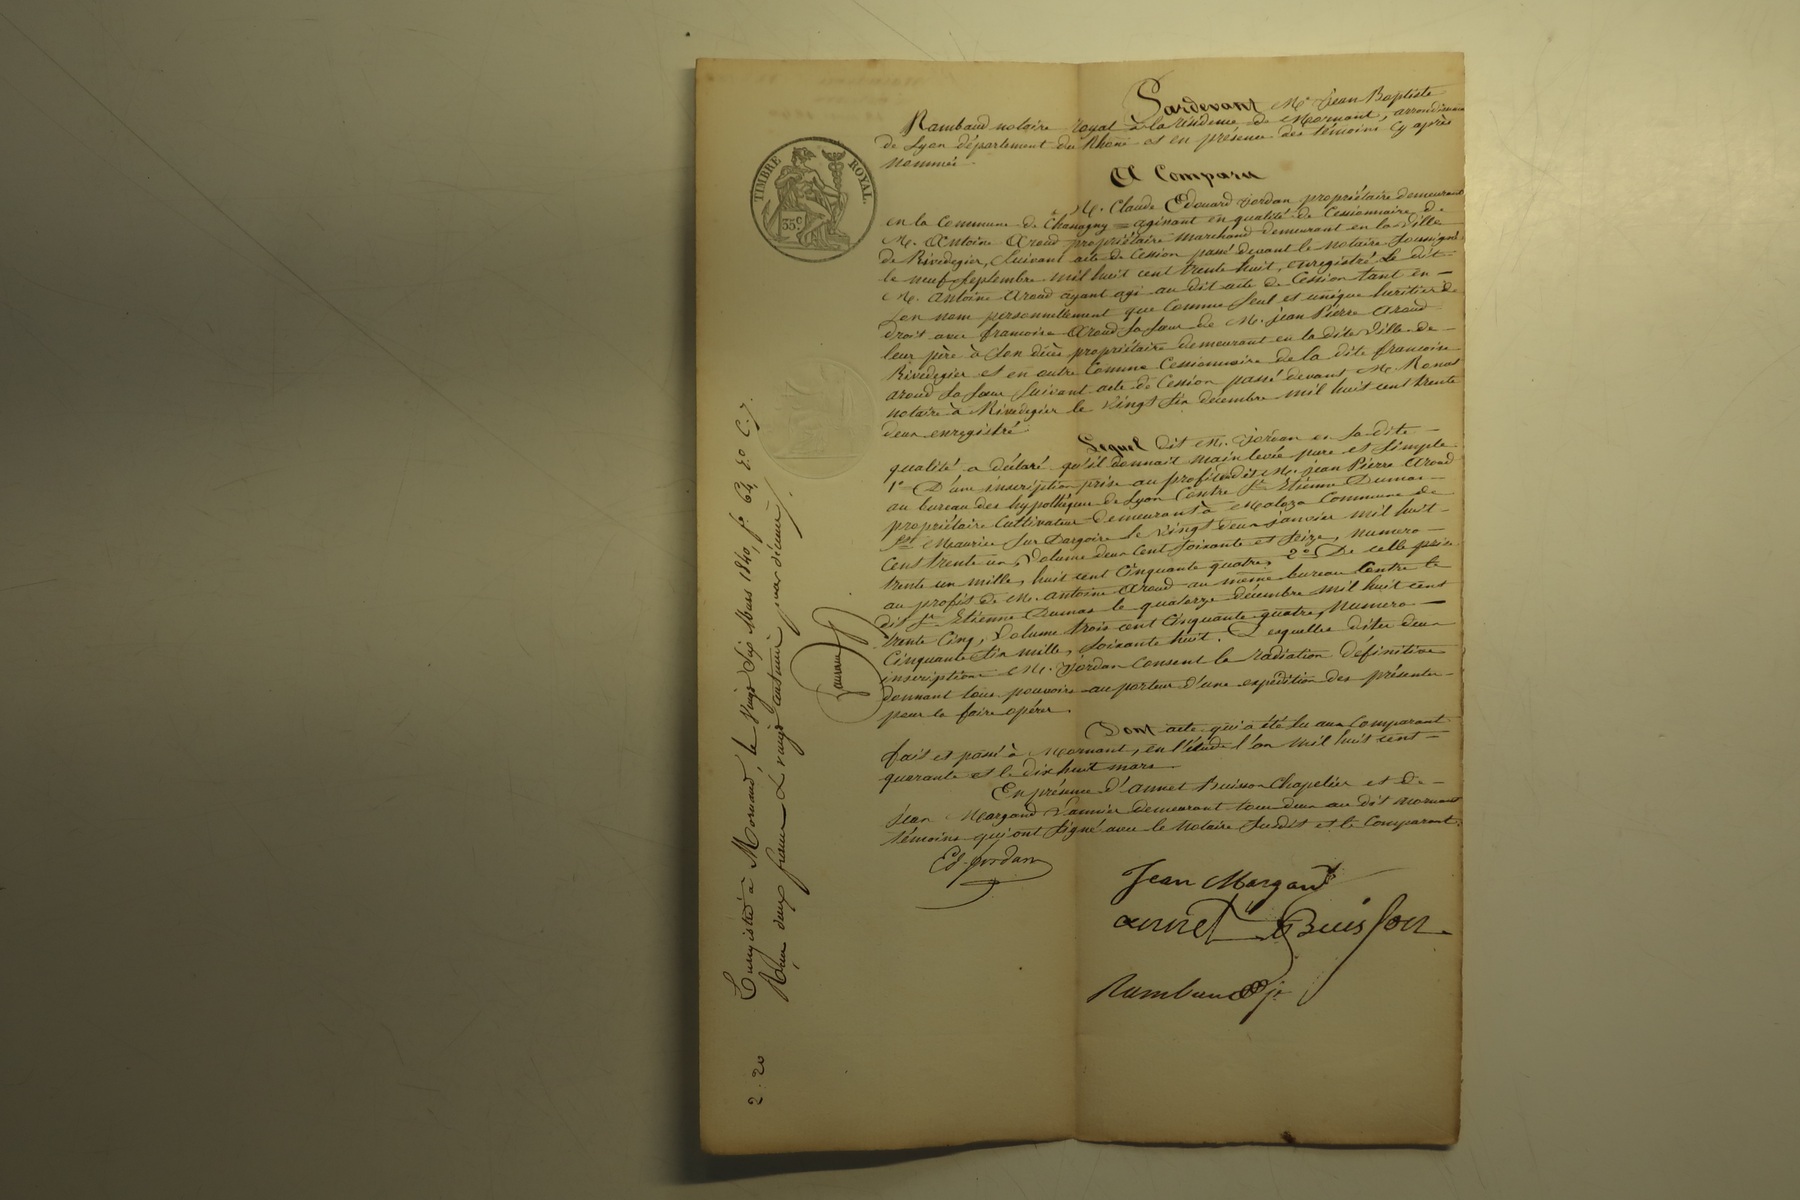 Pardevant Me Jean Baptiste
Rambaud notaire royal à la résidence de Mornant, arrondissement
de Lyon département du Rhône et en présence des témoins cy après
nommés.
A Comparu
M. Claude Edouard Jordan propriétaire demeurant
en la Commune de Chassagny = agissant en qualité de Cessionnaire de
M. Antoine Aroud propriétaire marchand demeurant en la ville
de Rivedegier, suivant acte de Cession passé devant le notaire soussigné
le neuf septembre mil huit cent trente huit, enregistré le dit
M. Antoine Aroud ayant agi au dit acte de Cession tant en
son nom personnellement que comme seul et unique héritier de
droit avec françoise Aroud sa sœur de M. jean Pierre Aroud
leur père à son décès propriétaire demeurant en la dite ville de
Rivedegier et en outre comme Cessionnaire de la dite francoise
aroud sa sœur suivant acte de Cession passé devant Me
notaire à Rivedegier le vingt six décembre mil huit cent trente
deux enregistré.
Lequel dit M. Jordan en sa dite
qualité a déclaré qu'il donnait main levée pure et simple
1° D'une inscription prise au profit du dit M. jean Pierre Aroud
au bureau des hypothèques de Lyon Contre Sr Etienne Dumas
propriétaire Cultivateur demeurant à Commune de
St Maurice sur Dargoire le vingt deux janvier mil huit
Cent trente un, Volume deux Cent soixante et seize, numero
trente un mille, huit cent Cinquante quatre, 2° De celle prise
au profit de M. Antoine Aroud au même bureau Contre le
dit Sr Etienne Dumas le quatorze décembre mil huit cent
trente Cinq, Volume trois cent Cinquante quatre, Numero
Cinquante six mille, soixante huit. Desquelles dites deux
inscriptions M. Jordan Consent la radiation définitive
donnant tous pouvoirs au porteur d'une expédition des présentes
pour la faire opérer.
Dont acte qui a été lu aux Comparant
fait et passé à Mornant, en l'étude l'an mil huit cent
quarante et le dix huit mars.
En présence d'annet Buisson Chapelier et de
Jean Margand Vannier demeurant tous deux au dit mornant
témoins qui ont signé avec le Notaire susdit et le Comparant.
Ed. Jordan
Jean Margand
annet Buisson
Rambaud
TIMBRE ROYAL.
35 c
Enregistré à Mornant, le Vingt Six Mars 1840, fo 64 Ro C. 7.
Reçu deux francs & vingt centimes pour décime.
2.20